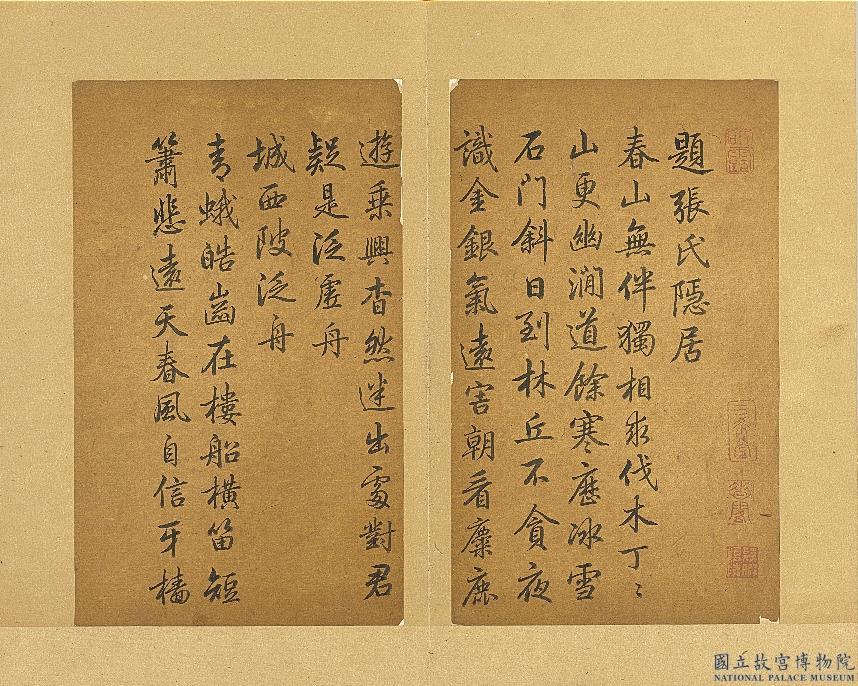 題張氏隱居
春山無伴獨相求伐木丁〻
山更幽澗道餘寒歷冰雪
石門斜日到林丘不貪夜
識金銀氣遠害朝看麋鹿
遊乗興杳然迷出處對君
疑是泛虛舟
城西陂泛舟
青蛾皓齒在樓船橫笛短
簫悲遠天春風自信牙檣
國立故宮博物院
NATIONAL PALACE MUSEUM